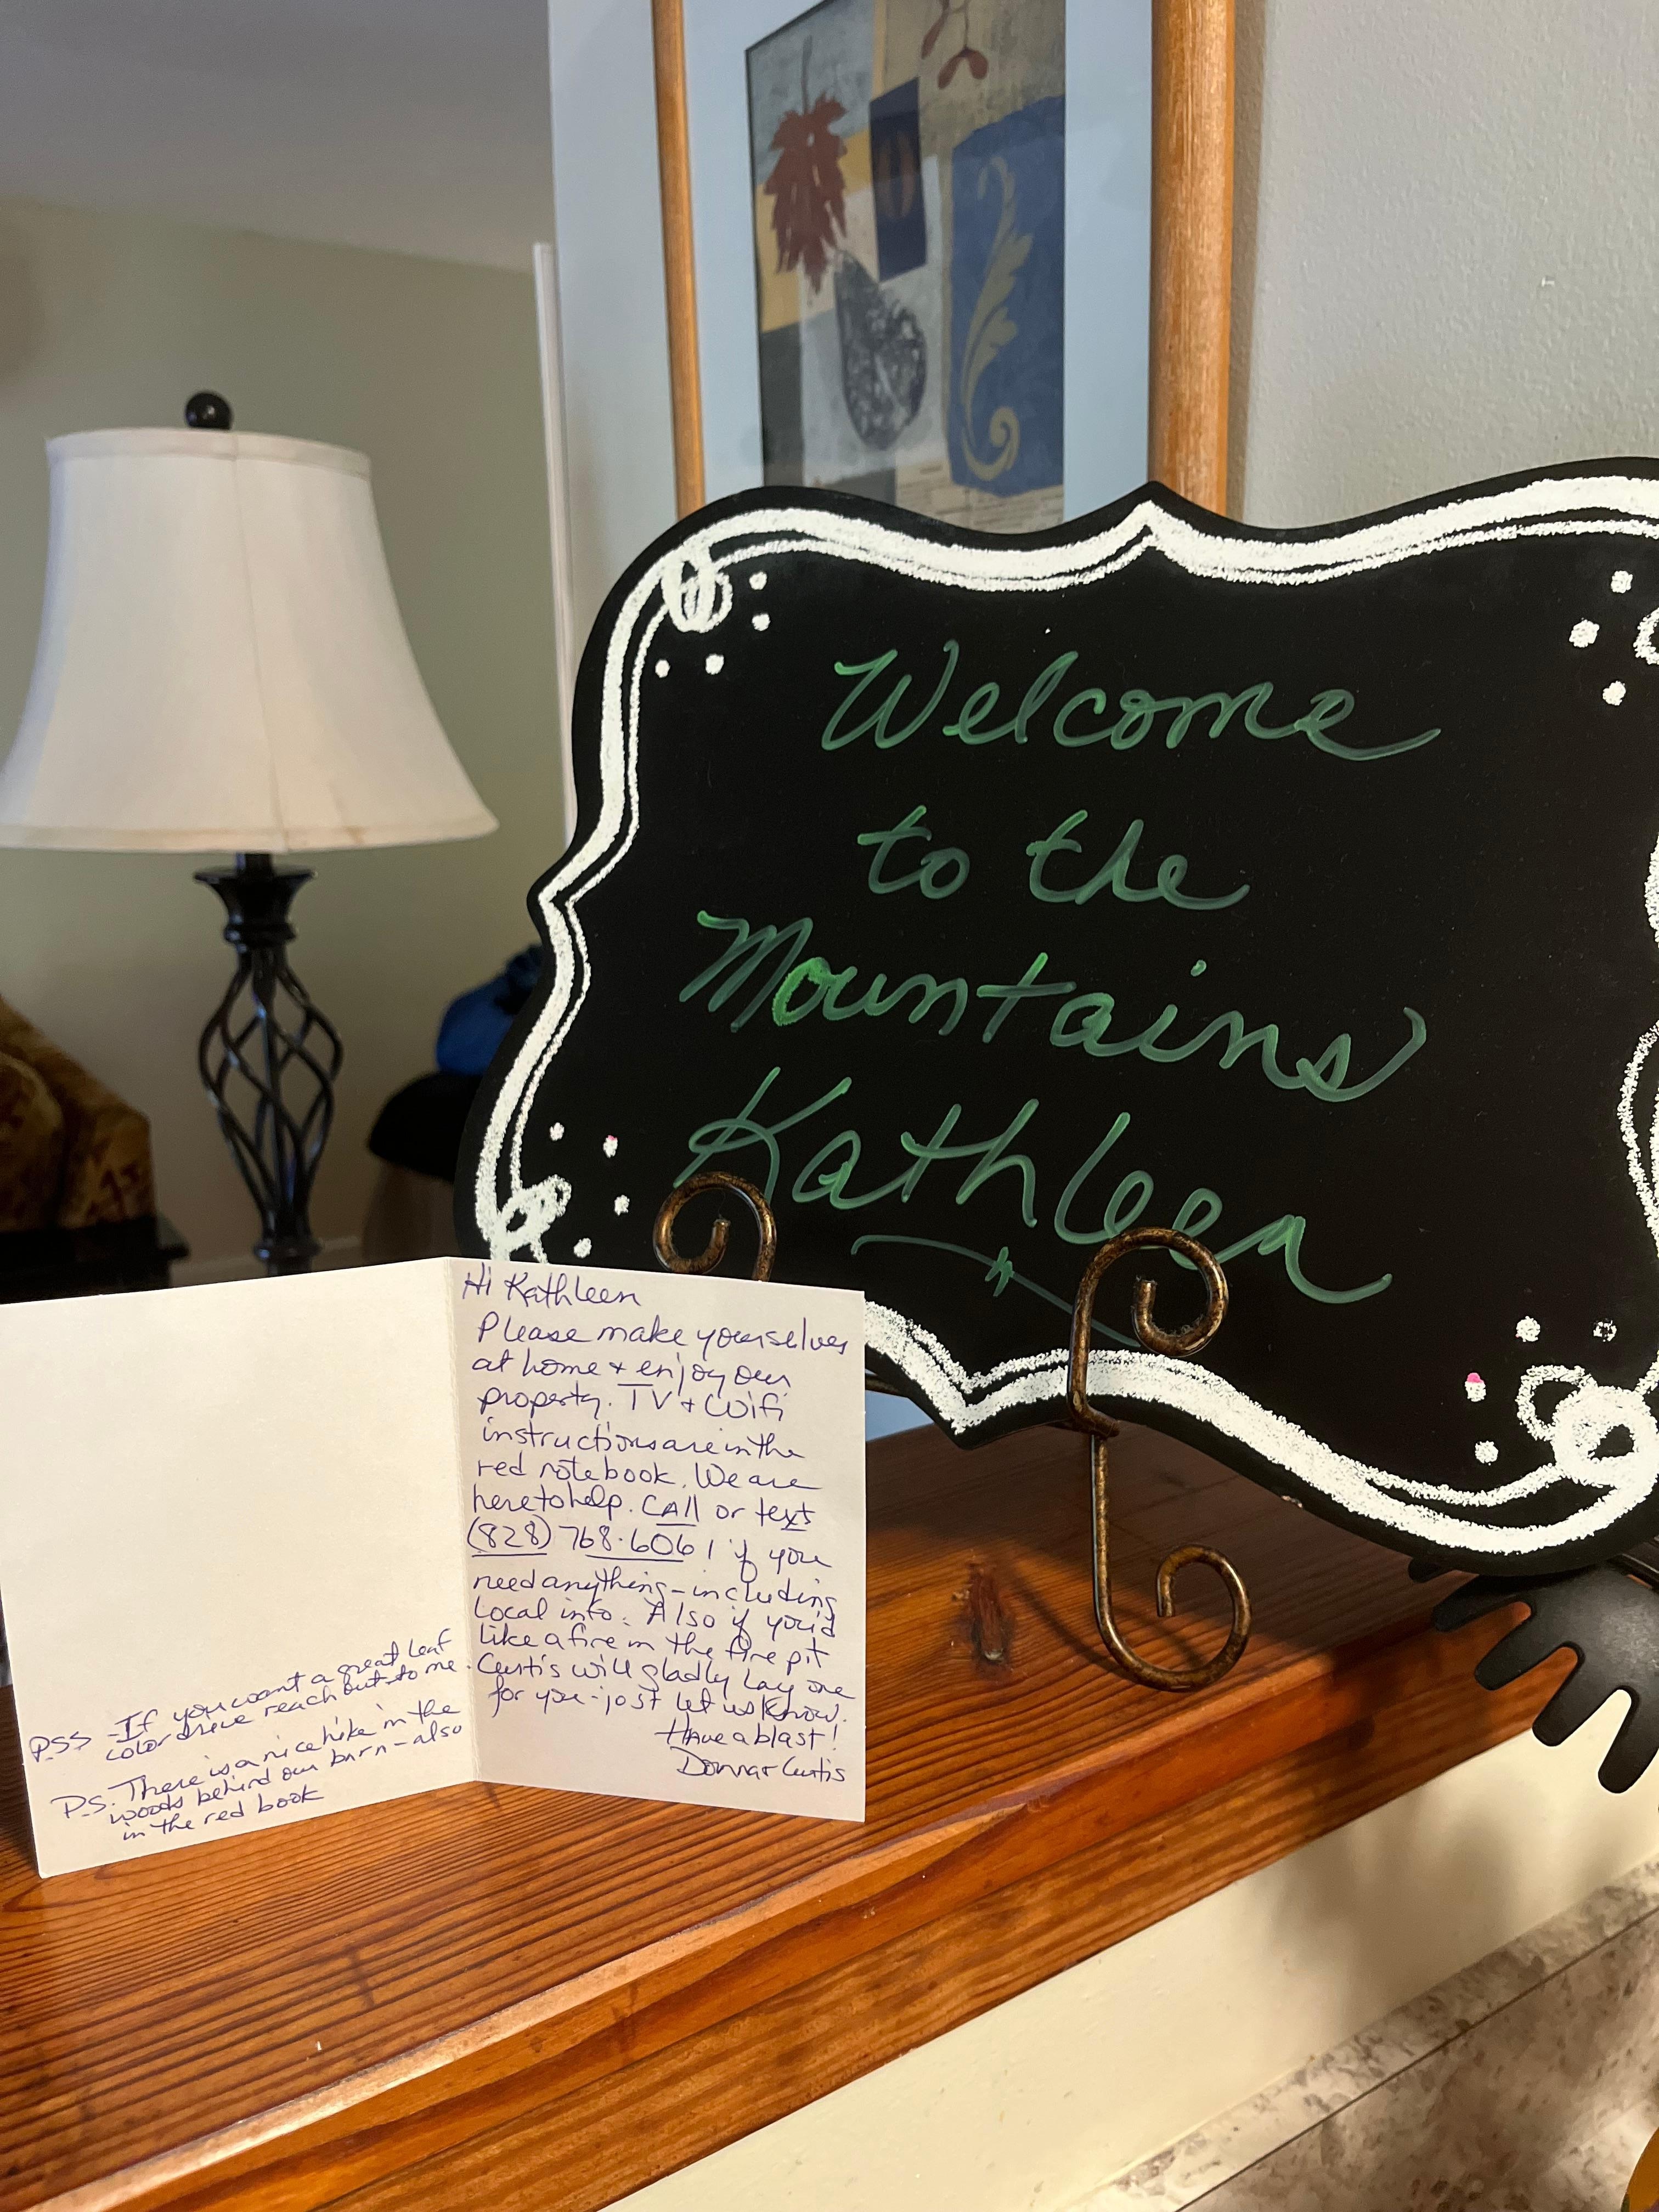 Welcome
to the
Mountains
Kathleen
Hi Kathleen
Please make yourselves
at home + enjoy our
property. TV + Wifi
instructions are in the
red notebook. We are
here to help. CAll or text
(828) 768-6061 if you
need anything - including
Local info. Also if you'd
like a fire in the fire pit
Curtis will gladly lay one
for you - just let us know.
Have a blast!
Donna + Curtis
PSS - If you want a great leaf
color drive reach out to me.
P.S. There is a nice hike in the
woods behind our barn - also
in the red book